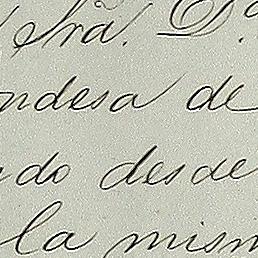 Srã. D.ª
ndesa de
ndo desde
la mism